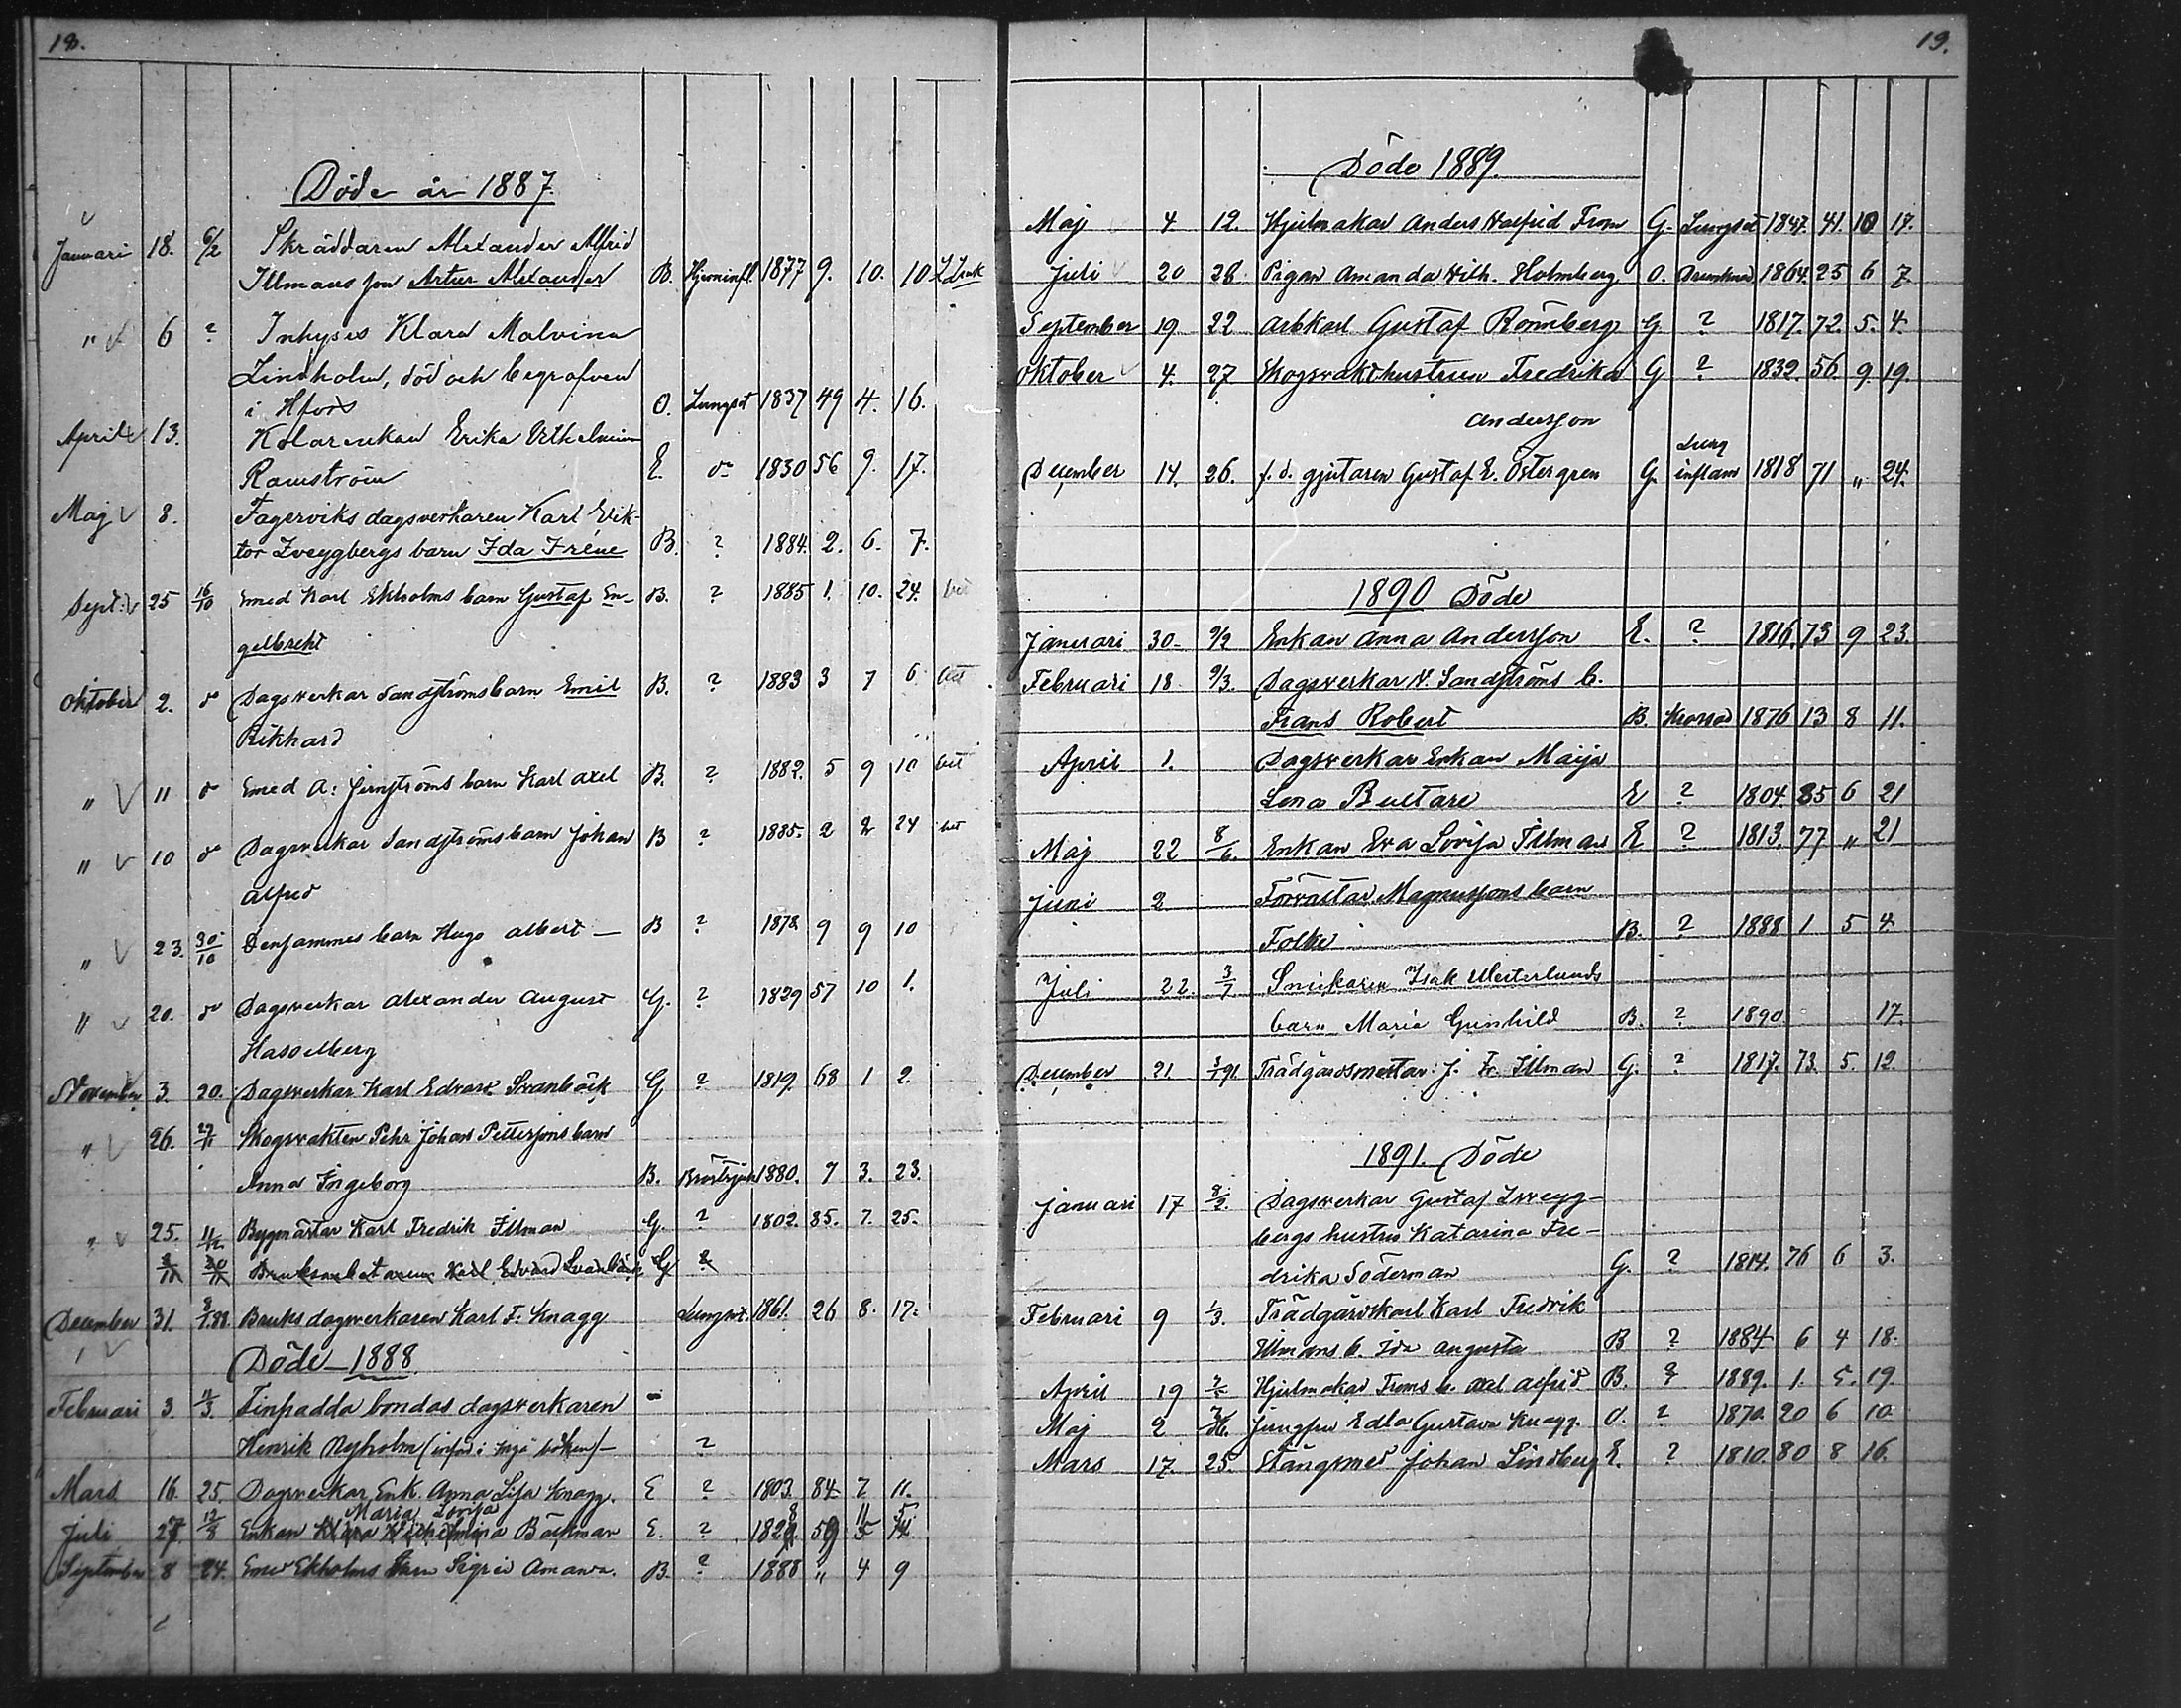 18.
Döde år 1887.
Januari 18. 6/2 Skräddaren Alexander Alfrid
Illmans son Artur Alexander B. Hjerninfl. 1877 9. 10. 10
" 6 ? Inhyses Klara Malvina
Lindholm, död och begrafven
i Hfors O. Lungsot 1837 49 4. 16.
April 13. Erika Vilhelmina
Ramström E. do 1830 56 9. 17.
Maj 8. Fagerviks dagsverkaren Karl Vik-
tor Zveygbergs barn Ida Iréne B. ? 1884. 2. 6. 7.
Sept: 25 16/10 Smed Karl Ekholms barn Gustaf En- B. ? 1885 1. 10. 24. bet
gelbrekt
Oktober 2. do Dagsverkar Sandströms barn Emil B. ? 1883 3 7 6 bet
Rikhard
" 11 do Smed A: barn Karl Axel B. ? 1882. 5 9 10 bet
" 10 do Dagsverkar Sandströms barn Johan B ? 1885. 2 2 24 bet
Alfred
" 23. 30/10 barn Hugo Albert — B ? 1878 9 9 10
" 20. do Dagsverkar Alexander August G. ? 1829 57 10 1.
Hasselberg
November 3. 20. Dagsverkar Karl Edvard Svanbäck G ? 1819 68 1 2.
" 26. 27/11 Skogvakten Pehr Johan Petterssons barn
Anna Ingeborg B. Bröstsjuk 1880. 7 3. 23.
" 25. 11/12 Byggmästar Karl Fredrik Illman G. ? 1802. 85. 7. 25.
3/11 20/11 Bruksarbetaren Karl Edvard Svanbäck G ?
December 31. 8/1.88. Bruks dagsverkaren Karl F: Knagg Lungsot. 1861. 26 8. 17.
Döde 1888
Februari 3. 4/3. Finpadda bondas dagsverkaren
Henrik Nyholm (införd i Ingå boken) — ?
Mars 16. 25. Dagsverkar Enk. Anna Lisa Knagg. E ? 1803. 84. 7 11.
Maria Lovisa 8 11 5
Juli 27. 12/8 Enkan Klara Vilhelmina Bäckman E. ? 1829. 59 5 14
September 8 24. Smed Ekholms barn Sigrid Amanda. B. ? 1888 " 4 9
19.
Döde 1889.
Maj 4 12. Hjulmakar Anders Walfrid From G. Lungsot 1847. 41. 10 17.
Juli 20 28 Pigan Amanda Wilh. Holmberg O. Drunknad 1864. 25 6 7.
September 19. 22 Arbkarl Gustaf Rönnberg G ? 1817. 72. 5. 4.
Oktober 4. 27 Skogsvakthustrun Fredrika G ? 1832. 56. 9. 19.
Andersson
Lung
December 14. 26. f. d. gjutaren Gustaf E. Östergren G. inflam 1818 71 " 24.
1890 Döde
Januari 30. 9/2 Enkan Anna Andersson E. ? 1816. 73 9 23.
Februari 18 9/3. Dagsverkar N. Sandströms b.
Frans Robert B. Krossad 1876 13 8 11.
April 1. Dagsverkar Enkan Maija
Lena Bultare E ? 1804. 85 6 21
Maj 22 8/6. Enkan Eva Lovisa Illman E ? 1813. 77 " 21
Juni 2 Förvaltar Magnussons barn
Folke B. ? 1888 1 5 4
Juli 22. 3/7 Snickaren Isak Westerlunds
barn Maria Gunhild B. ? 1890 17.
December 21. 1/91. Trädgårdsmästar J. Fr. Illman G. ? 1817. 73. 5. 12.
1891. Döde
Januari 17 8/2. Dagsverkar Gustaf Zweyg-
bergs hustru Katarina Fre-
drika Söderman G. ? 1814. 76 6 3.
Februari 9 1/3. Trädgårdskarl Karl Fredrik
Illmans b. Ida Augusta B ? 1884 6 4 18.
April 19 Hjulmakar Froms b. Axel Alfrid B. ? 1889. 1. 5. 19.
Maj 2 Jungfru Edla Gustava Knagg. O. ? 1870 20 6 10
Mars 17. 25. Stångsmed Johan Lindberg E. ? 1810. 80 8 16.